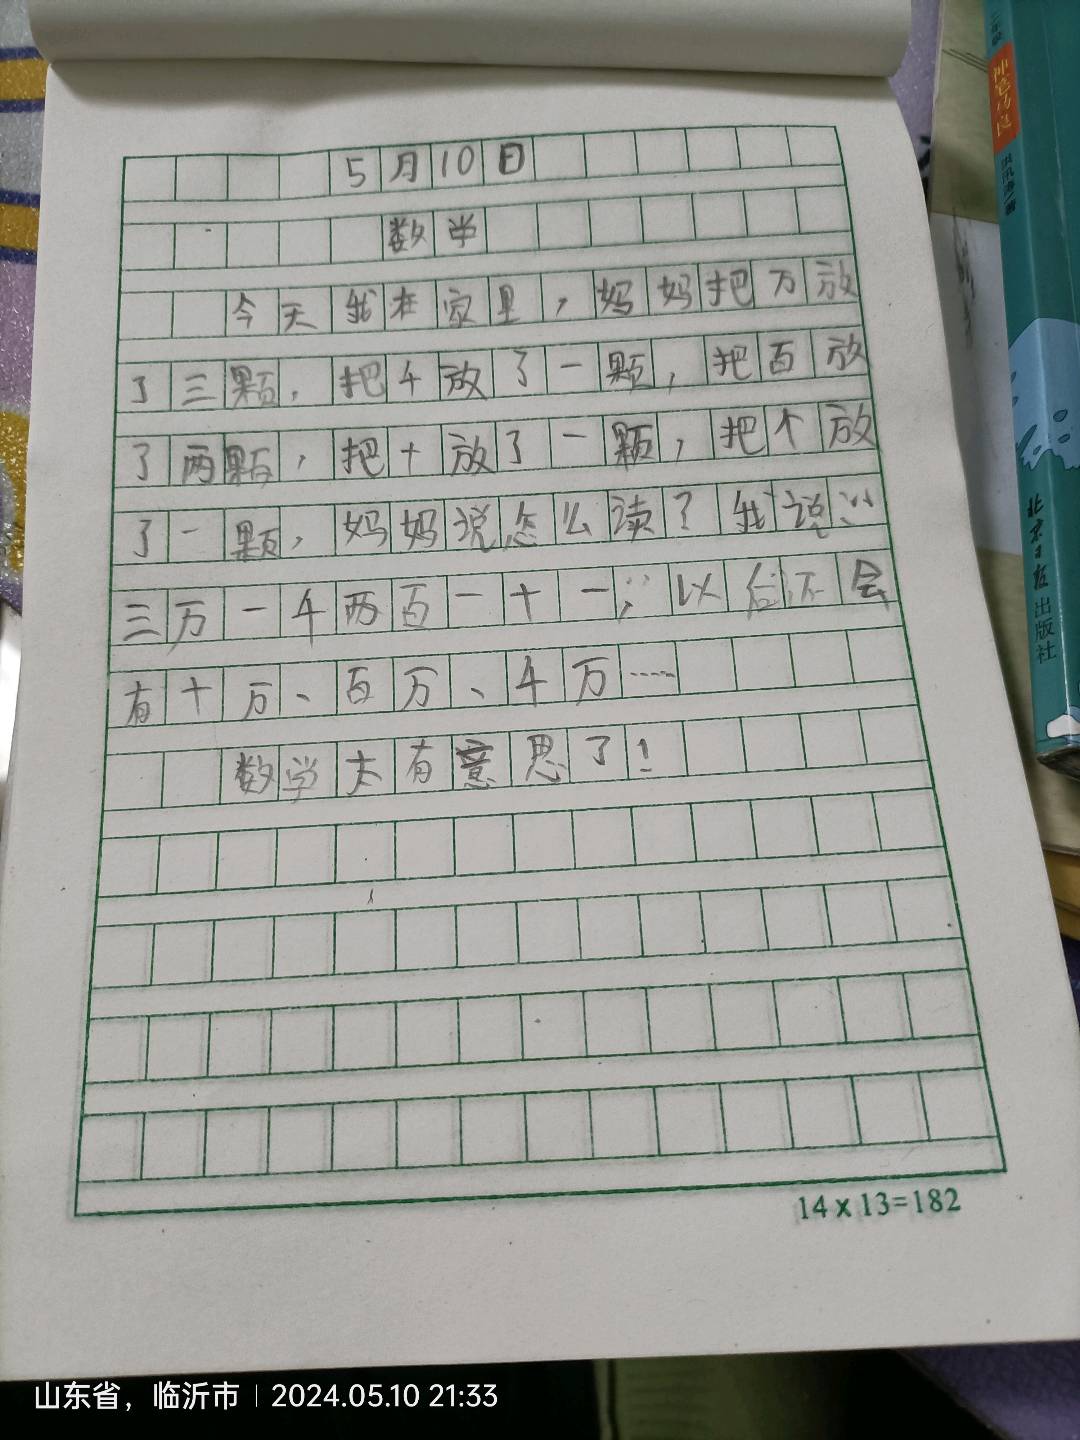 5月10日
数学
今天我在家里，妈妈把万放
了三颗，把千放了一颗，把百放
了两颗，把十放了一颗，把个放
了一颗，妈妈说怎么读？我说：“
三万一千两百一十一；”以后还会
有十万、百万、千万……
数学太有意思了！
14×13=182
神笔马良
洪汛涛◎著
北京日报出版社
山东省，临沂市 | 2024.05.10 21:33